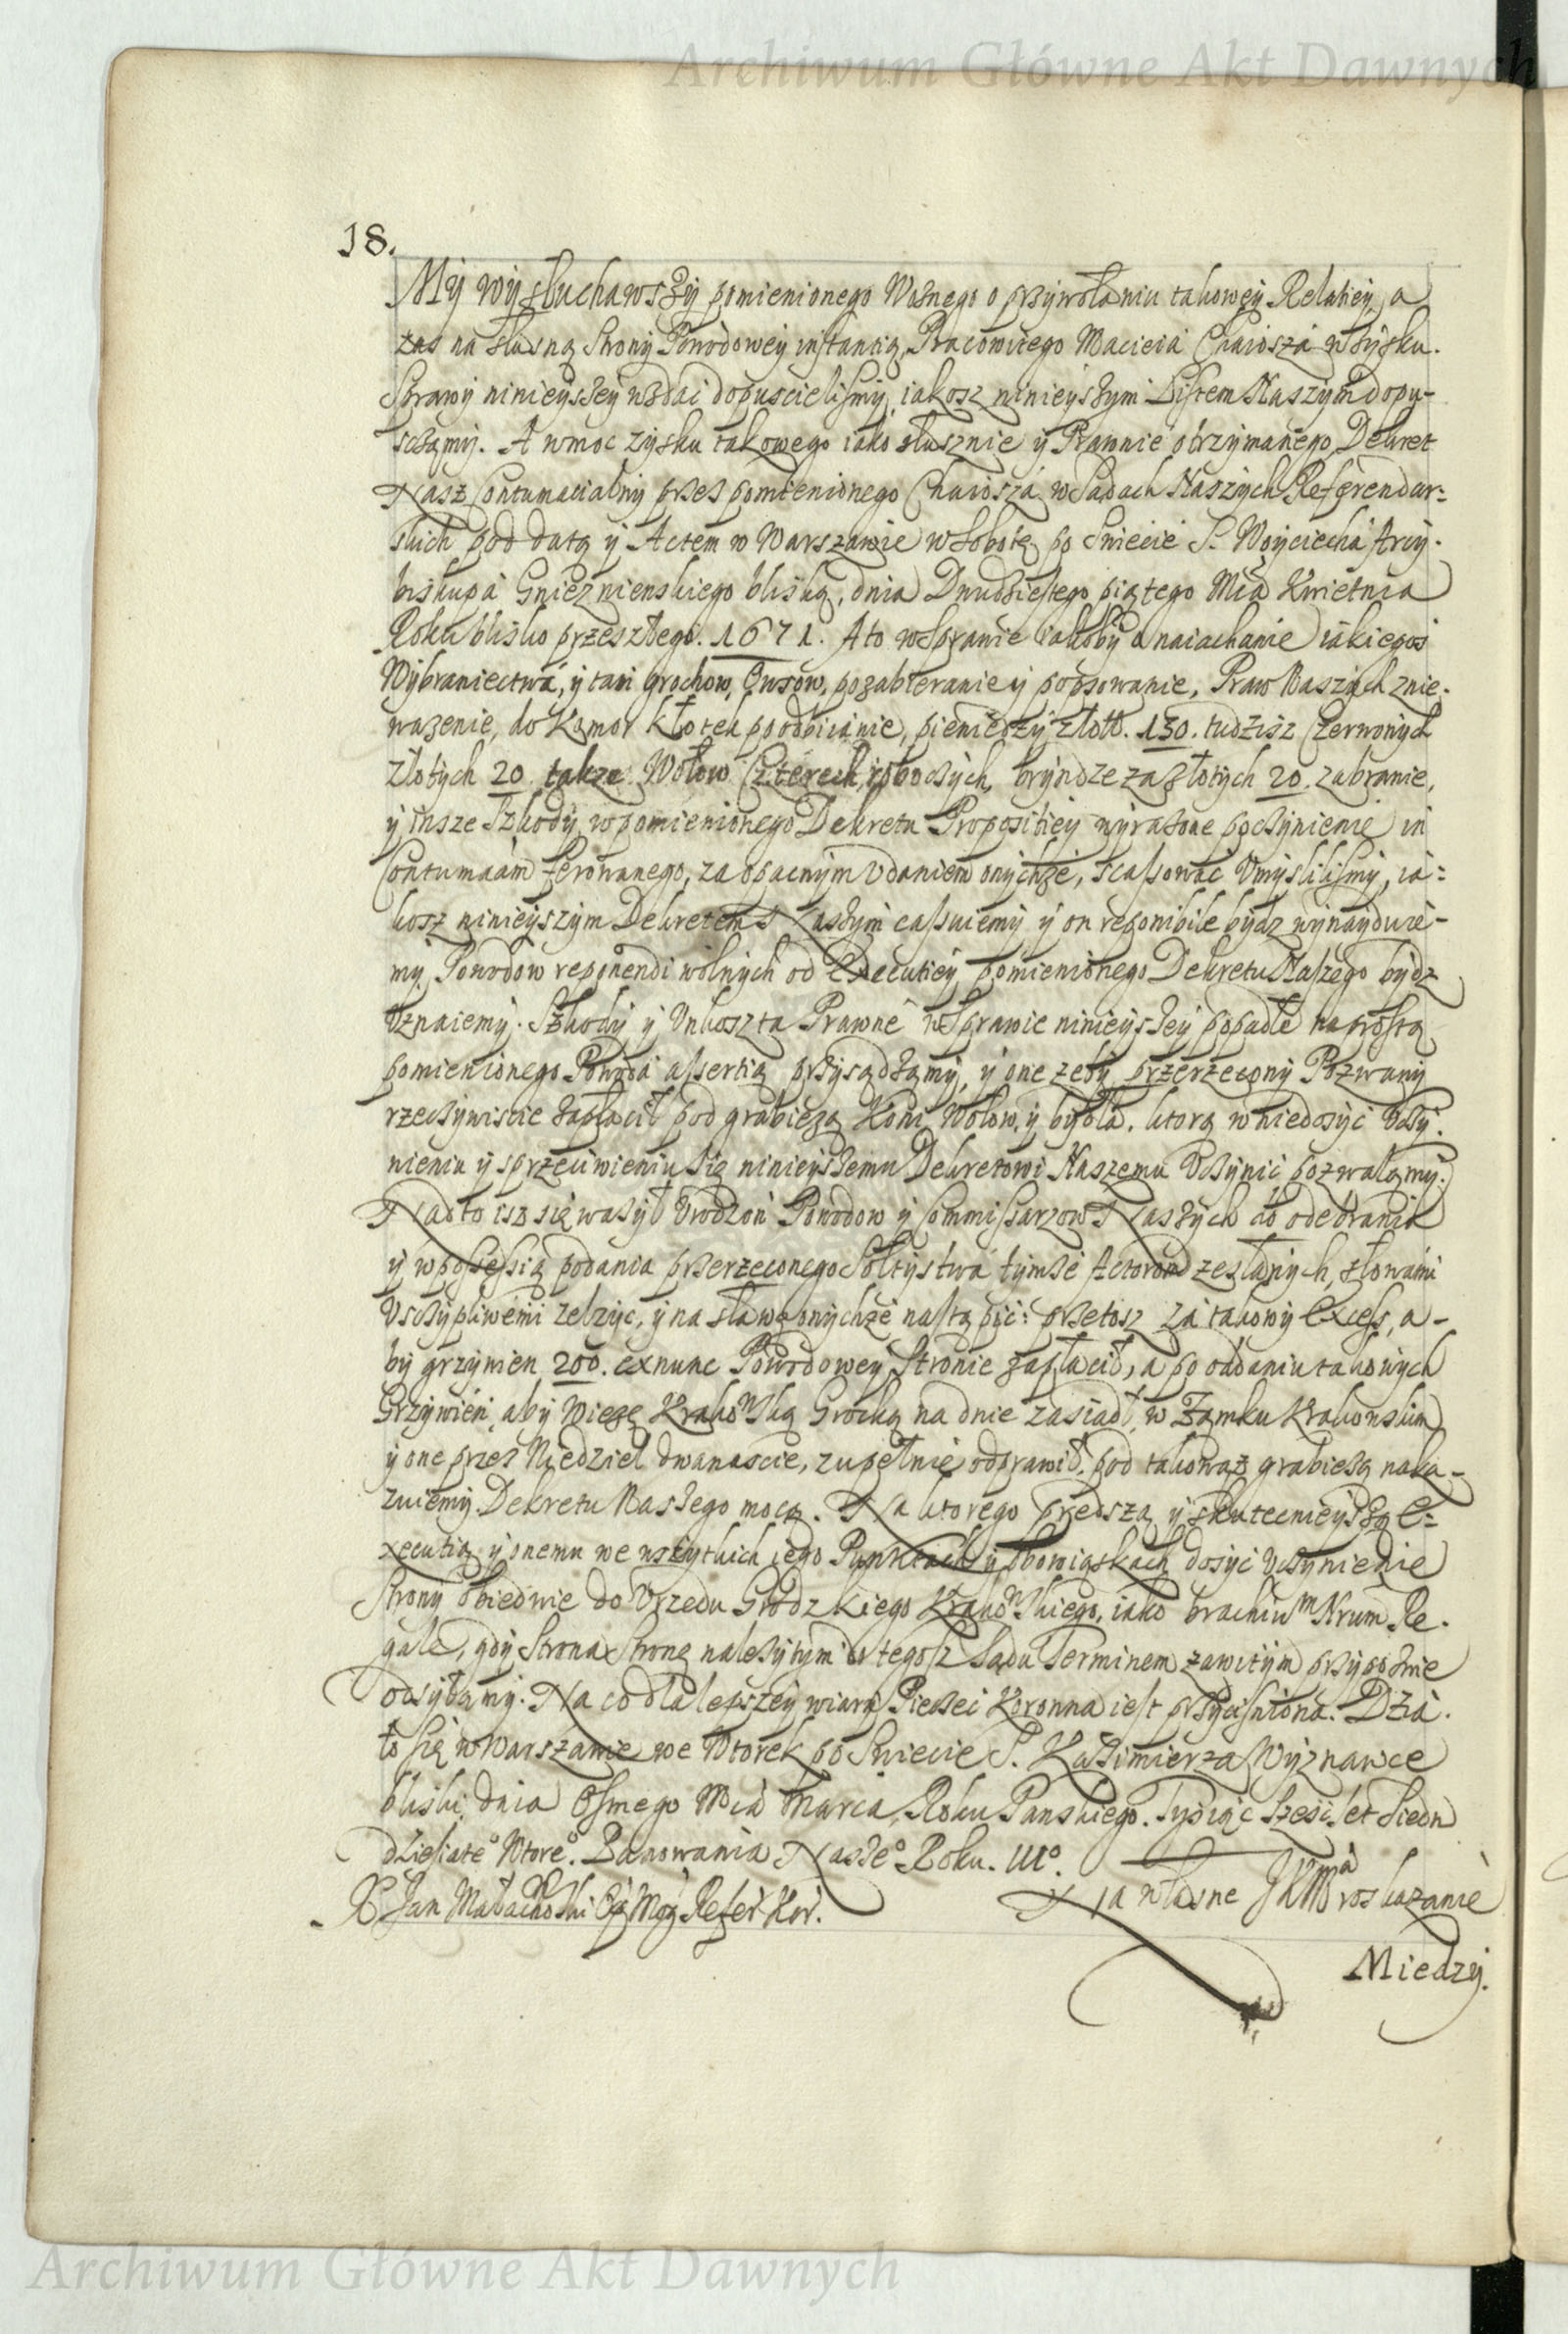 Archiwum Główne Akt Dawnych
18.
My wysłuchawszy pomienionego Woźnego o przywołaniu takowey Relatiey, a
zas na słuszną Strony Powodowey instantią, Pracowitego Macieia Chaiosza w zysku.
Sprawy ninieyszey wzdać dopuscielismy, iakosz ninieyszym Listem Naszym dopu-
sczamy. A w moc zysku takowego iako słusznie y Prawnie otrzymanego, Dekret
Nasz Contumacialny przez pomienionego Chaiosza w Sądach Naszych Referendar:
skich pod datą y Actem w Warszawie w Sobotę po Swiecie S. Woyciecha Arcy.
biskupa Gnieznienskiego bliską, dnia Dwudziestego piątego Mca Kwietnia
Roku blisko przeszłego. 1671. A to w Sprawie iakoby o naiachanie iakiegos
Wybraniectwa, y tam grochow, Owsow, pozabieranie y popsowanie, Praw Naszych znie.
wazenie, do Komor kłotek poodbicianie, pieniedzy złott. 130. tudzisz Czerwonych
Złotych 20 takze Wołow Czterech, roboczych, bryndze za złotych 20. zabranie,
y insze Szkody w pomienionego Dekretu Propositiey wyrazone poczynienie in
Contumaciam ferowanego, za opacznym Udaniem onychze, scassowac Umyslilismy, ia:
kosz ninieyszym Dekretem Naszym cassuiemy y on reponibile bydz wynayduie-
my. Powodow reponendi wolnych od Executiey pomienionego Dekretu Naszego bydz
Uznaiemy. Szkody y Unkoszta Prawne w Sprawie ninieyszey popadłe na prostą
pomienionego Powoda assertią przysądzamy, y one zeby przerzeczony Pozwany
rzeczywiscie zapłacił pod grabiezą Koni, Wołow, y bydła, ktorą w niedosyć Uczy.
nieniu y sprzeciwieniu się ninieyszemu Dekretowi Naszemu Uczynić pozwalamy.
Nadto isz się wazył Urodzon Powodow y Commissarzow Naszych do odebrania
y w possessią podania przerzeczonego Sołtystwa tymze Actorom zesłanych, słowami
Uszczypliwemi zelzyc, y na sławę onychze nastąpić: przetosz za takowy Excess, a-
by grzywien 200. exnunc Powodowey Stronie zapłacił, a po oddaniu takowych
Grzywien, aby Wiezę Krakowską Grocką na dnie zasiadł, w Zamku Krakowskim
y one przez Niedziel dwanascie, zupełnie odprawił, pod takowąż grabiezą naka-
zuiemy Dekretu Naszego mocą. Na ktorego prędszą y skutecznieyszą E:
xecutią y onemu we wszytkich iego Punktach y Obowiąskach dosyć Uczynienie
Strony Obiedwie do Urzędu Grodzkiego Krakowskiego, iako brachium Nrum Re.
gale, gdy Strona Stronę nalezytym do tegosz Sądu Terminem zawitym przypozwie
odsyłamy. Na co dla lepszey wiary Pieczęć Koronna iest przycisniona. Dzia.
ło się w Warszawie we Wtorek po Swiecie S. Kazimierza Wyznawce
bliski, dnia Osmego Mca Marca, Roku Panskiego. Tysiąc Szescset Siedm
dziesiąte° Wtore°. Panowania Nasze° Roku. III°.
X Jan Małachoski Refer. Kor. Na własne JKMci roskazanie
Miedzy.
Archiwum Główne Akt Dawnych